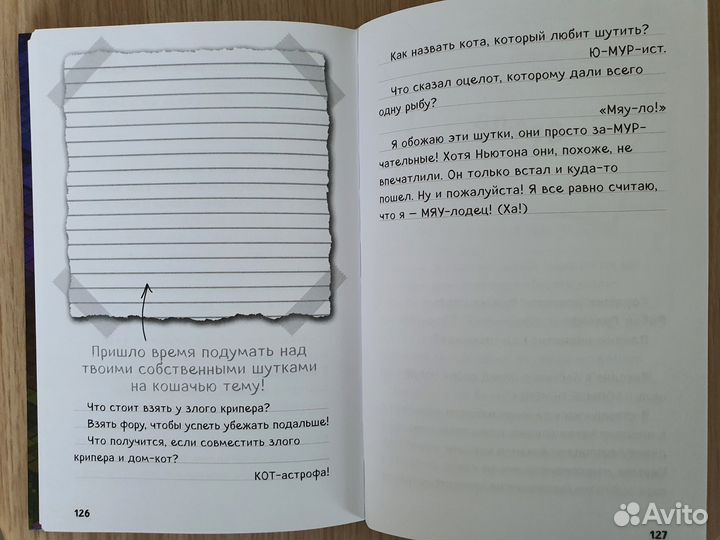 Пришло время подумать над
твоими собственными шутками
на кошачью тему!
Что стоит взять у злого крипера?
Взять фору, чтобы успеть убежать подальше!
Что получится, если совместить злого
крипера и дом-кот?
КОТ-астрофа!
126
Как назвать кота, который любит шутить?
Ю-МУР-ист.
Что сказал оцелот, которому дали всего
одну рыбу?
«Мяу-ло!»
Я обожаю эти шутки, они просто за-МУР-
чательные! Хотя Ньютона они, похоже, не
впечатлили. Он только встал и куда-то
пошел. Ну и пожалуйста! Я все равно считаю,
что я – МЯУ-лодец! (Ха!)
127
Avito